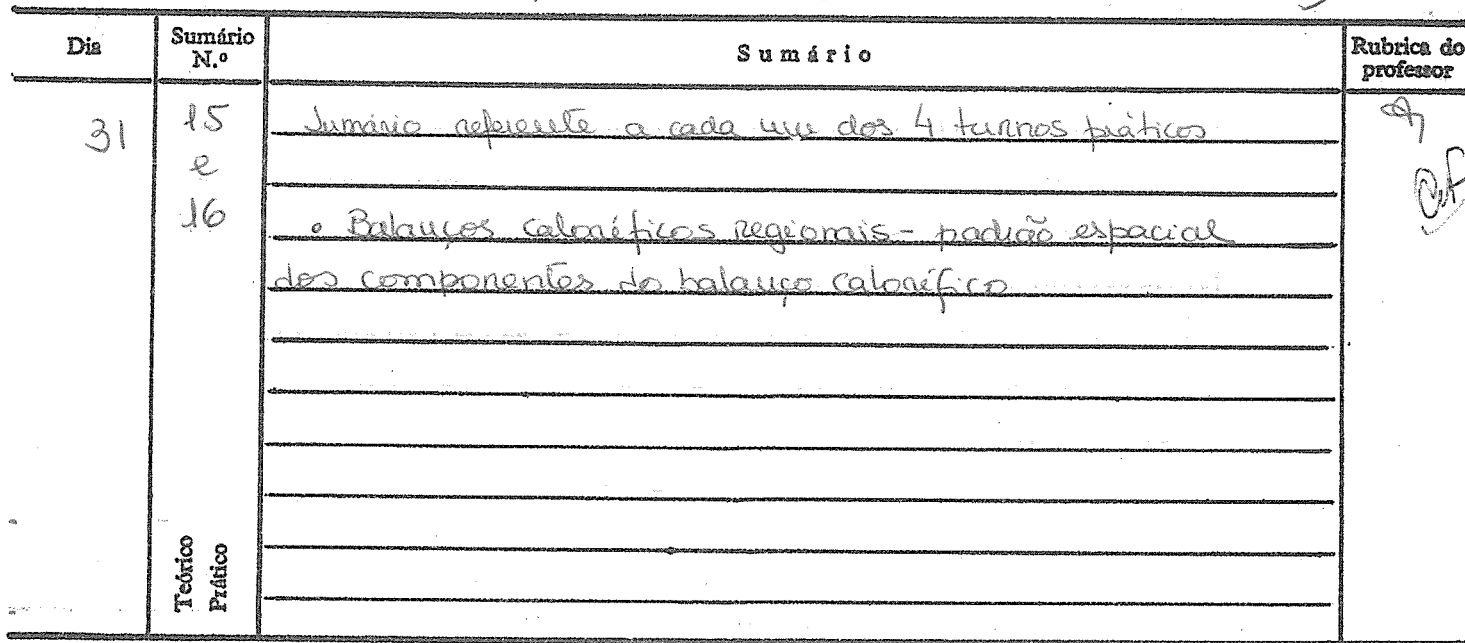 Dia
Sumário N.º
Sumário
Rubrica do professor
31
15
e
16
Sumário referente a cada um dos 4 turnos práticos
• Balanços caloríficos regionais - padrão espacial
dos componentes do balanço calorífico
Teórico
Prático